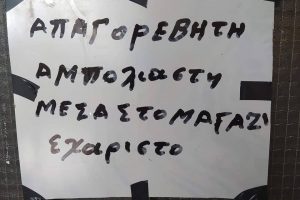 ΑΠΑΓΟΡΕΒΗΤΗ
ΑΜΠΟΛΙΑΣΤΗ
ΜΕΣΑΣΤΟΜΑΓΑΖΙ
ΕΧΑΡΙΣΤΟ